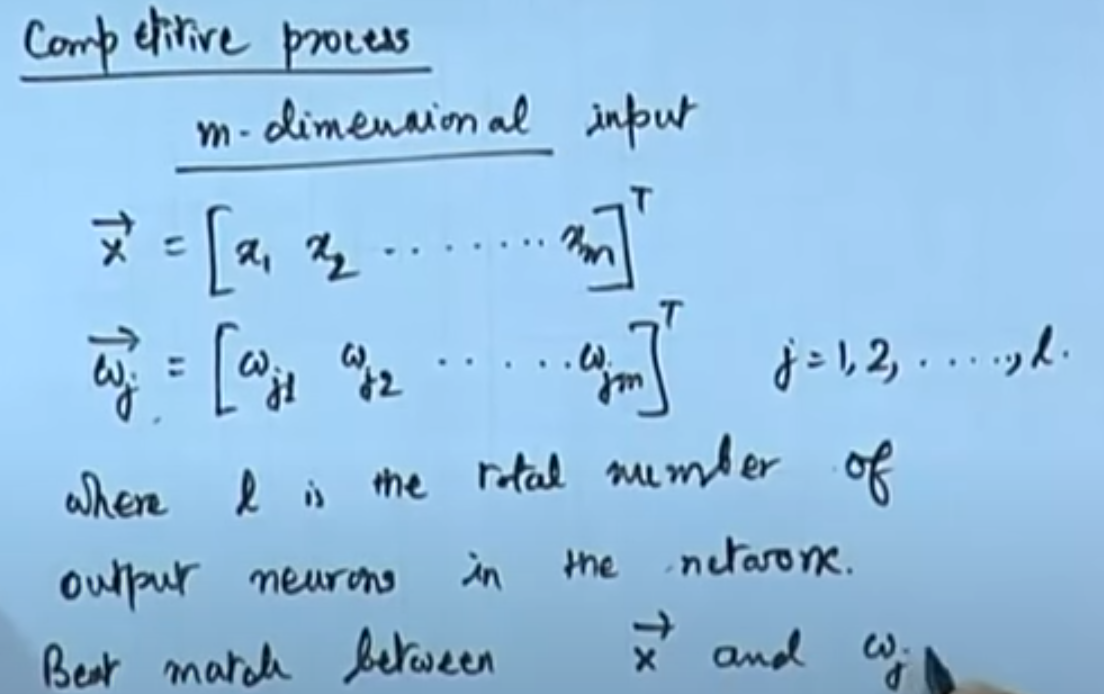 Competitive process
m-dimensional input
x⃗ = [x₁ x₂ ........ xₘ]ᵀ
ω⃗ⱼ = [ωⱼ₁ ωⱼ₂ ...... ωⱼₘ]ᵀ j = 1, 2, ....., l.
where l is the total number of
output neurons in the network.
Best match between x⃗ and ωⱼ